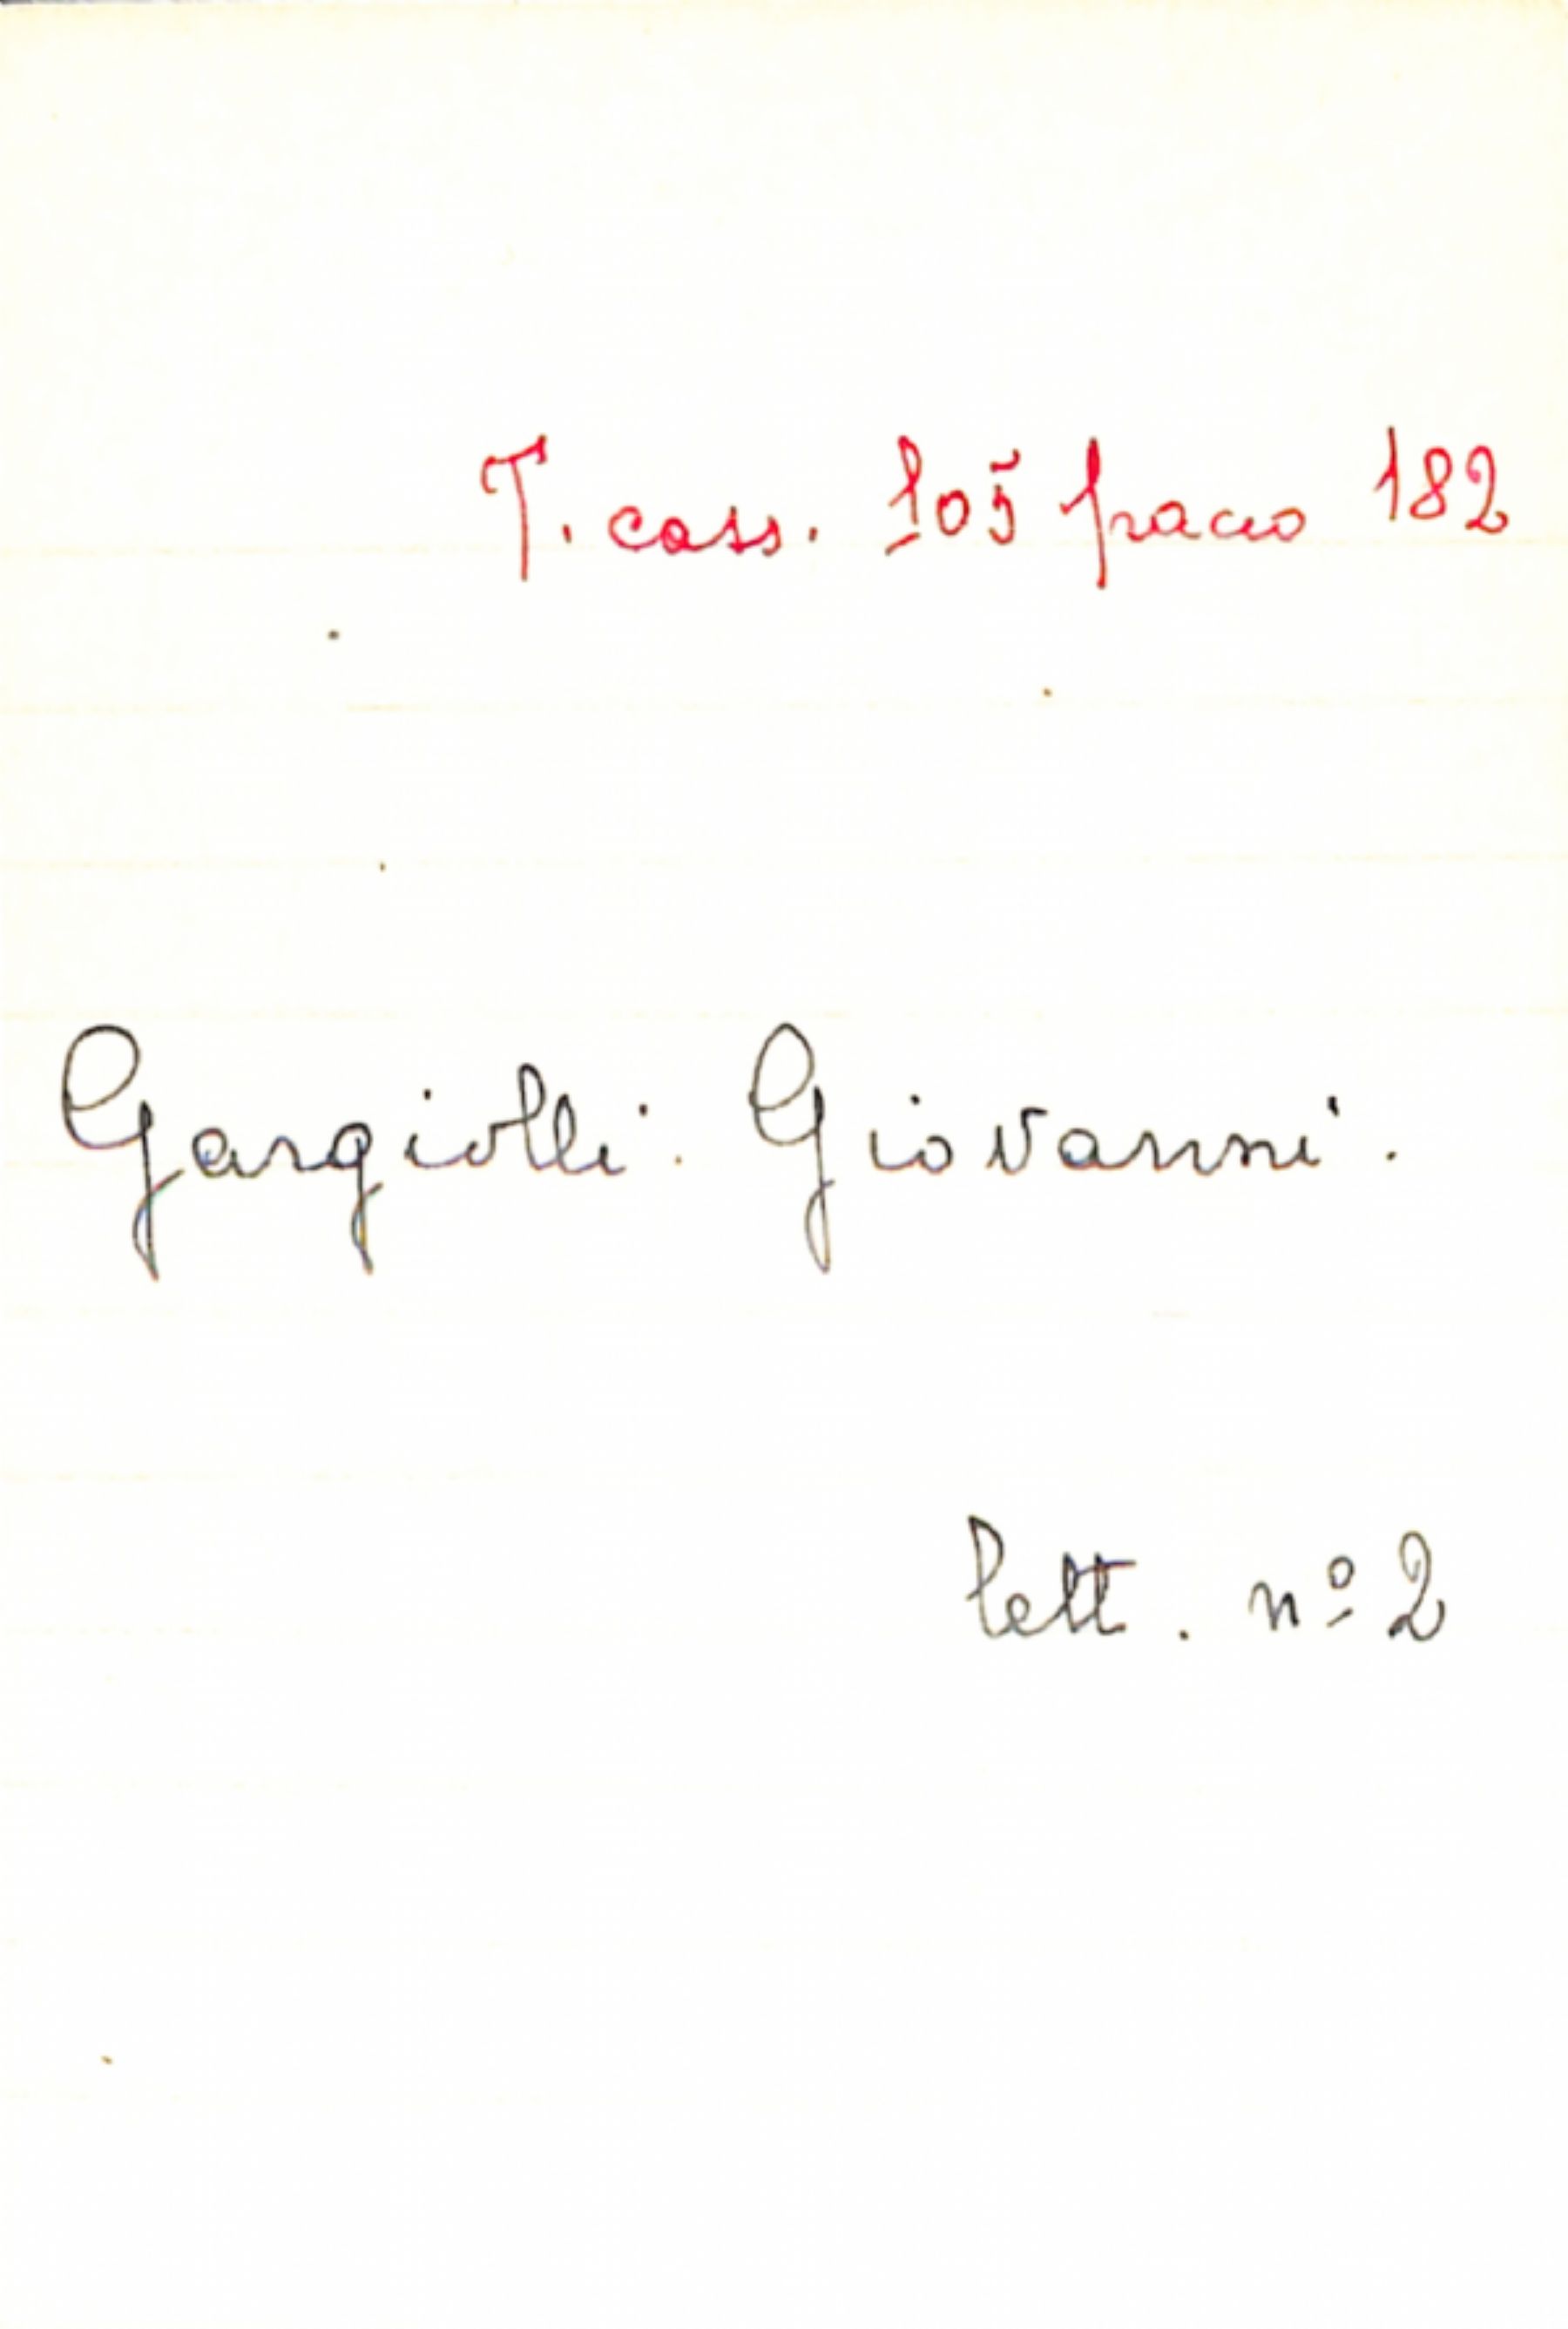 T. cass. 105 pacco 182
Gargiolli. Giovanni.
lett. nº 2